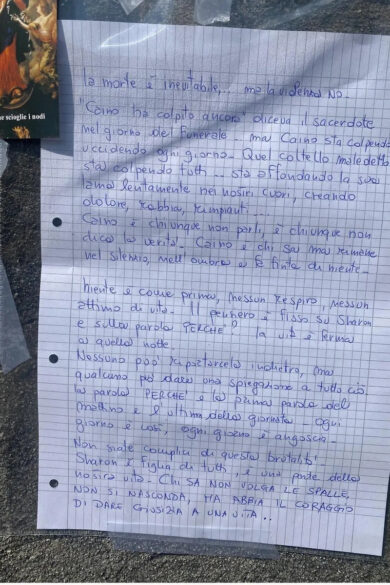 e scioglie i nodi
la morte è inevitabile,... ma la violenza NO.
"Caino ha colpito ancora" diceva il sacerdote
nel giorno del Funerale - ma Caino sta colpendo
uccidendo ogni giorno - Quel coltello maledetto
sta colpendo tutti... sta affondando la sua
lama lentamente nei nostri cuori, creando
dolore, rabbia, rimpianti...
Caino è chiunque non parli, è chiunque non
dica la verità - Caino è chi sa ma rimane
nel silenzio, nell'ombra e fa finta di niente -
Niente è come prima, nessun respiro, nessun
attimo di vita - Il pensiero è fisso su Sharon
e sulla parola PERCHÉ? la vita è ferma
a quella notte.
Nessuno può riportarcela indietro, ma
qualcuno può dare una spiegazione a tutto ciò.
la parola PERCHÉ è la prima parola del
mattino e l'ultima della giornata - ogni
giorno è così, ogni giorno è angoscia -
Non siate complici di questa brutalità
Sharon è figlia di tutti, è una parte della
nostra vita - Chi SA NON VOLGA LE SPALLE,
NON SI NASCONDA, MA ABBIA IL CORAGGIO
DI DARE GIUSTIZIA A UNA VITA..